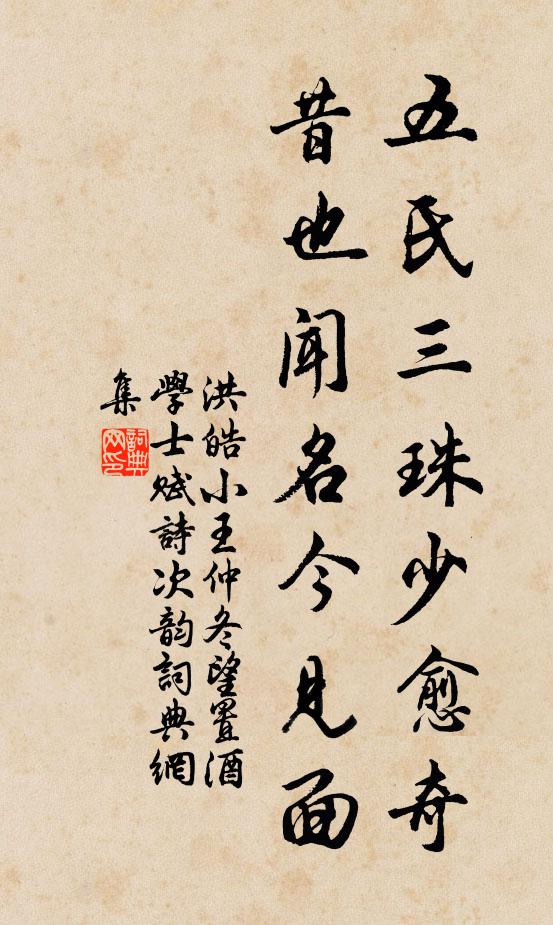 五氏三珠少愈奇
昔也聞名今見面
洪皓小王仲冬望置酒
學士賦詩次韵詞典網
集
詞典網印